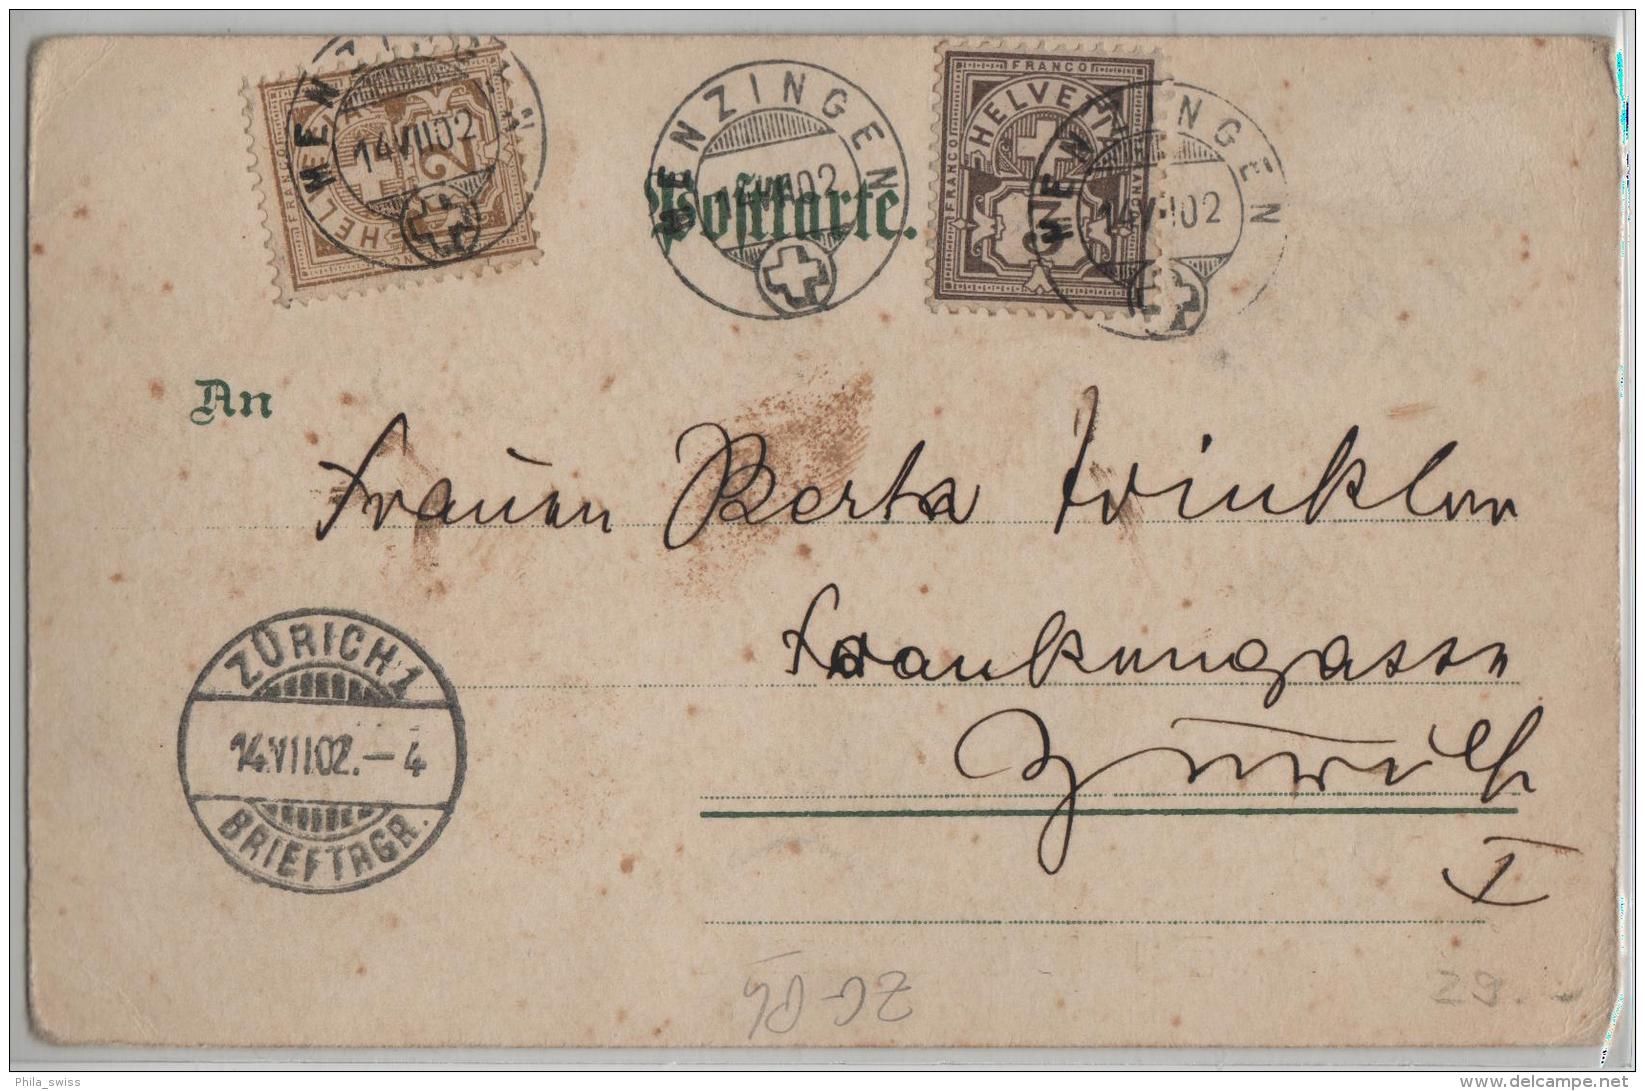 MENZINGEN
14 VII 02
FRANCO
HELVETIA
2
MENZINGEN
14 VII 02
Postkarte.
FRANCO
HELVETIA
MENZINGEN
14 VII 02
An
Frauen Berta Winkler
Frankengasse
Zürich
I
ZÜRICH 1
14.VII.02.–4
BRIEFTRGR.
29.–
Phila_swiss
http://www.delcampe.net